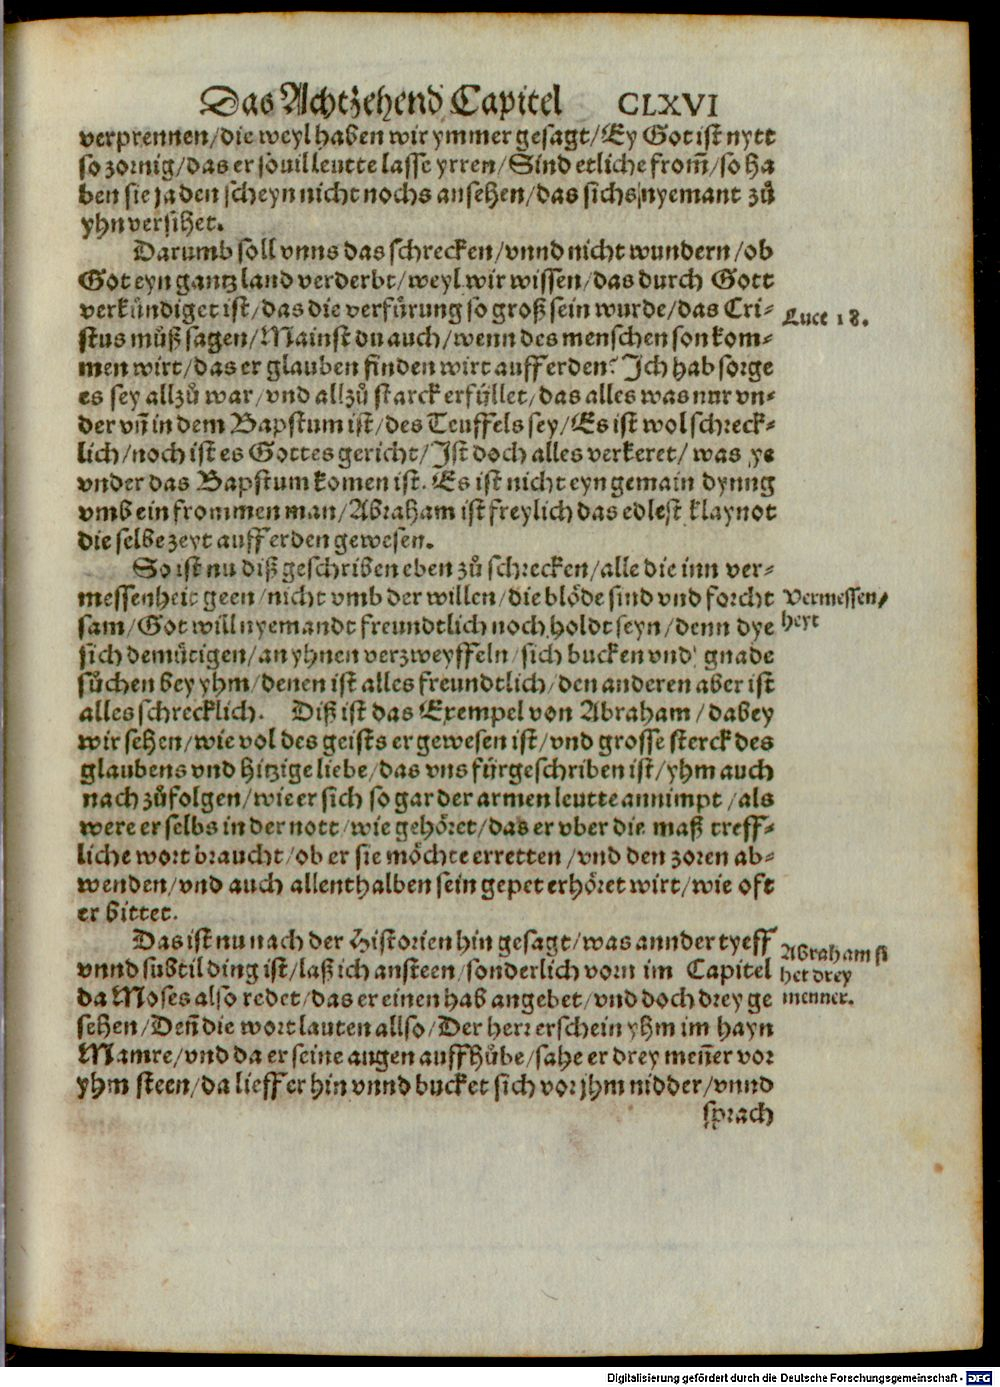 Das Achtzehend Capitel CLXVI
verprennen/die weyl haben wir ymmer gesagt/Ey Got ist nytt
so zornig/das er souil leutte lasse yrren/Sind etliche from̃/so ha
ben sie ja den scheyn nicht nochs ansehen/das sichs nyemant zů
yhn versihet.
Darumb soll vnns das schrecken/vnnd nicht wundern/ob
Got eyn gantz land verderbt/weyl wir wissen/das durch Gott
verkündiget ist/das die verfürung so groß sein wurde/das Cri-
stus můß sagen/Mainst du auch/wenn des menschen son kom-
men wirt/das er glauben finden wirt auff erden? Ich hab sorge
es sey allzů war/vnd allzů starck erfüllet/das alles was nur vn-
der vñ in dem Bapstum ist/des Teuffels sey/Es ist wol schreck-
lich/noch ist es Gottes gericht/Ist doch alles verkeret/was ye
vnder das Bapstum komen ist. Es ist nicht eyn gemain dynng
vmb ein frommen man/Abraham ist freylich das edlest klaynot
die selbe zeyt auff erden gewesen.
So ist nu diß geschriben eben zů schrecken/alle die inn ver-
messenheit geen/nicht vmb der willen/die blöde sind vnd forcht
sam/Got will nyemandt freundtlich noch holdt seyn/denn dye
sich demütigen/an yhnen verzweyffeln/sich bucken vnd gnade
sůchen bey yhm/denen ist alles freundtlich/den anderen aber ist
alles schrecklich. Diß ist das Exempel von Abraham/dabey
wir sehen/wie vol des geists er gewesen ist/vnd grosse sterck des
glaubens vnd hitzige liebe/das vns fürgeschriben ist/yhm auch
nach zůfolgen/wie er sich so gar der armen leutte annimpt/als
were er selbs in der nott/wie gehöret/das er vber die maß treff-
liche wort braucht/ob er sie möchte erretten/vnd den zoren ab-
wenden/vnd auch allenthalben sein gepet erhöret wirt/wie oft
er bittet.
Das ist nu nach der Historien hin gesagt/was annder tyeff
vnnd subtil ding ist/laß ich ansteen/sonderlich vorn im Capitel
da Moses also redet/das er einen hab angebet/vnd doch drey ge
sehen/Deñ die wort lauten allso/Der herr erschein yhm im hayn
Mamre/vnd da er seine augen auffhůbe/sahe er drey meñer vor
yhm steen/da lieff er hin vnnd bucket sich vor jhm nidder/vnnd
sprach
Luce 18.
Vermessen/
heyt
Abraham si
het drey
menner.
Digitalisierung gefördert durch die Deutsche Forschungsgemeinschaft - DFG